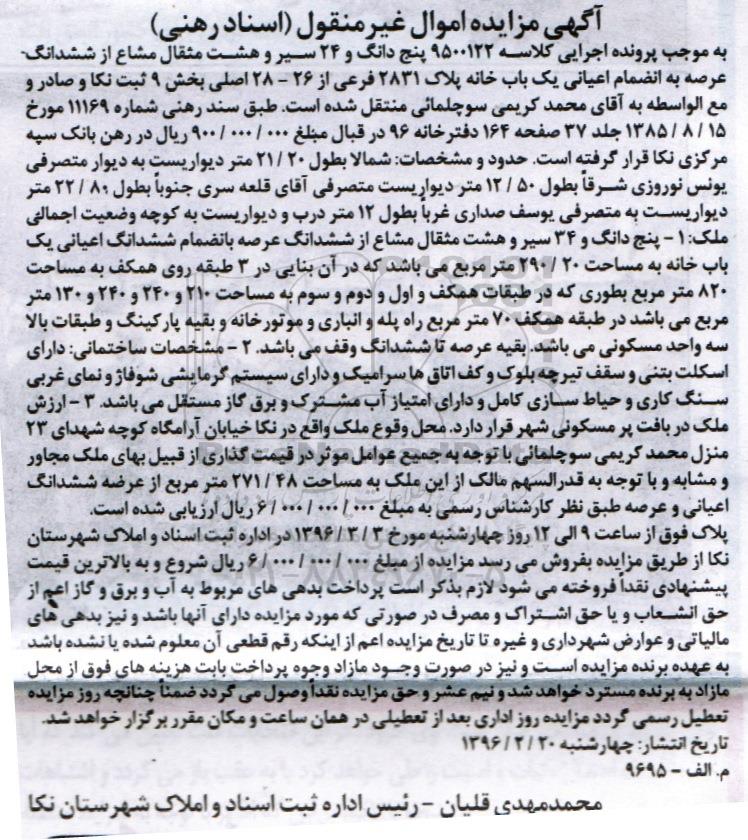 آگهی مزایده اموال غیرمنقول (اسناد رهنی)
به موجب پرونده اجرایی کلاسه ۹۵۰۰۱۲۲ پنج دانگ و ۲۴ سیر و هشت مثقال مشاع از ششدانگ
عرصه به انضمام اعیانی یک باب خانه پلاک ۲۸۳۱ فرعی از ۲۶ - ۲۸ اصلی بخش ۹ ثبت نکا و صادر و
مع الواسطه به آقای محمد کریمی سوچلمائی منتقل شده است. طبق سند رهنی شماره ۱۱۱۶۹ مورخ
۱۵ / ۸ / ۱۳۸۵ جلد ۳۷ صفحه ۱۶۴ دفترخانه ۹۶ در قبال مبلغ ۰۰۰ / ۰۰۰ / ۹۰۰ ریال در رهن بانک سپه
مرکزی نکا قرار گرفته است. حدود و مشخصات: شمالا بطول ۲۰ / ۲۱ متر دیواریست به دیوار متصرفی
یونس نوروزی شرقاً بطول ۵۰ / ۱۲ متر دیواریست متصرفی آقای قلعه سری جنوباً بطول ۸۰ / ۲۲ متر
دیواریست به متصرفی یوسف صداری غرباً بطول ۱۲ متر درب و دیواریست به کوچه وضعیت اجمالی
ملک: ۱ - پنج دانگ و ۳۴ سیر و هشت مثقال مشاع از ششدانگ عرصه بانضمام ششدانگ اعیانی یک
باب خانه به مساحت ۲۰ / ۲۹۰ متر مربع می باشد که در آن بنایی در ۳ طبقه روی همکف به مساحت
۸۲۰ متر مربع بطوری که در طبقات همکف و اول و دوم و سوم به مساحت ۲۱۰ و ۲۴۰ و ۲۴۰ و ۱۳۰ متر
مربع می باشد در طبقه همکف ۷۰ متر مربع راه پله و انباری و موتورخانه و بقیه پارکینگ و طبقات بالا
سه واحد مسکونی می باشد. بقیه عرصه تا ششدانگ وقف می باشد. ۲ - مشخصات ساختمانی: دارای
اسکلت بتنی و سقف تیرچه بلوک و کف اتاق ها سرامیک و دارای سیستم گرمایشی شوفاژ و نمای غربی
سنگ کاری و حیاط سازی کامل و دارای امتیاز آب مشترک و برق گاز مستقل می باشد. ۳ - ارزش
ملک در بافت پر مسکونی شهر قرار دارد. محل وقوع ملک واقع در نکا خیابان آرامگاه کوچه شهدای ۲۳
منزل محمد کریمی سوچلمائی با توجه به جمیع عوامل موثر در قیمت گذاری از قبیل بهای ملک مجاور
و مشابه و با توجه به قدرالسهم مالک از این ملک به مساحت ۴۸ / ۲۷۱ متر مربع از عرضه ششدانگ
اعیانی و عرصه طبق نظر کارشناس رسمی به مبلغ ۰۰۰ / ۰۰۰ / ۰۰۰ / ۶ ریال ارزیابی شده است.
پلاک فوق از ساعت ۹ الی ۱۲ روز چهارشنبه مورخ ۳ / ۳ / ۱۳۹۶ در اداره ثبت اسناد و املاک شهرستان
نکا از طریق مزایده بفروش می رسد مزایده از مبلغ ۰۰۰ / ۰۰۰ / ۰۰۰ / ۶ ریال شروع و به بالاترین قیمت
پیشنهادی نقداً فروخته می شود لازم بذکر است پرداخت بدهی های مربوط به آب و برق و گاز اعم از
حق انشعاب و یا حق اشتراک و مصرف در صورتی که مورد مزایده دارای آنها باشد و نیز بدهی های
مالیاتی و عوارض شهرداری و غیره تا تاریخ مزایده اعم از اینکه رقم قطعی آن معلوم شده یا نشده باشد
به عهده برنده مزایده است و نیز در صورت وجود مازاد وجوه پرداخت بابت هزینه های فوق از محل
مازاد به برنده مسترد خواهد شد و نیم عشر و حق مزایده نقداً وصول می گردد ضمناً چنانچه روز مزایده
تعطیل رسمی گردد مزایده روز اداری بعد از تعطیلی در همان ساعت و مکان مقرر برگزار خواهد شد.
تاریخ انتشار: چهارشنبه ۲۰ / ۲ / ۱۳۹۶
م. الف - ۹۶۹۵
محمدمهدی قلیان - رئیس اداره ثبت اسناد و املاک شهرستان نکا